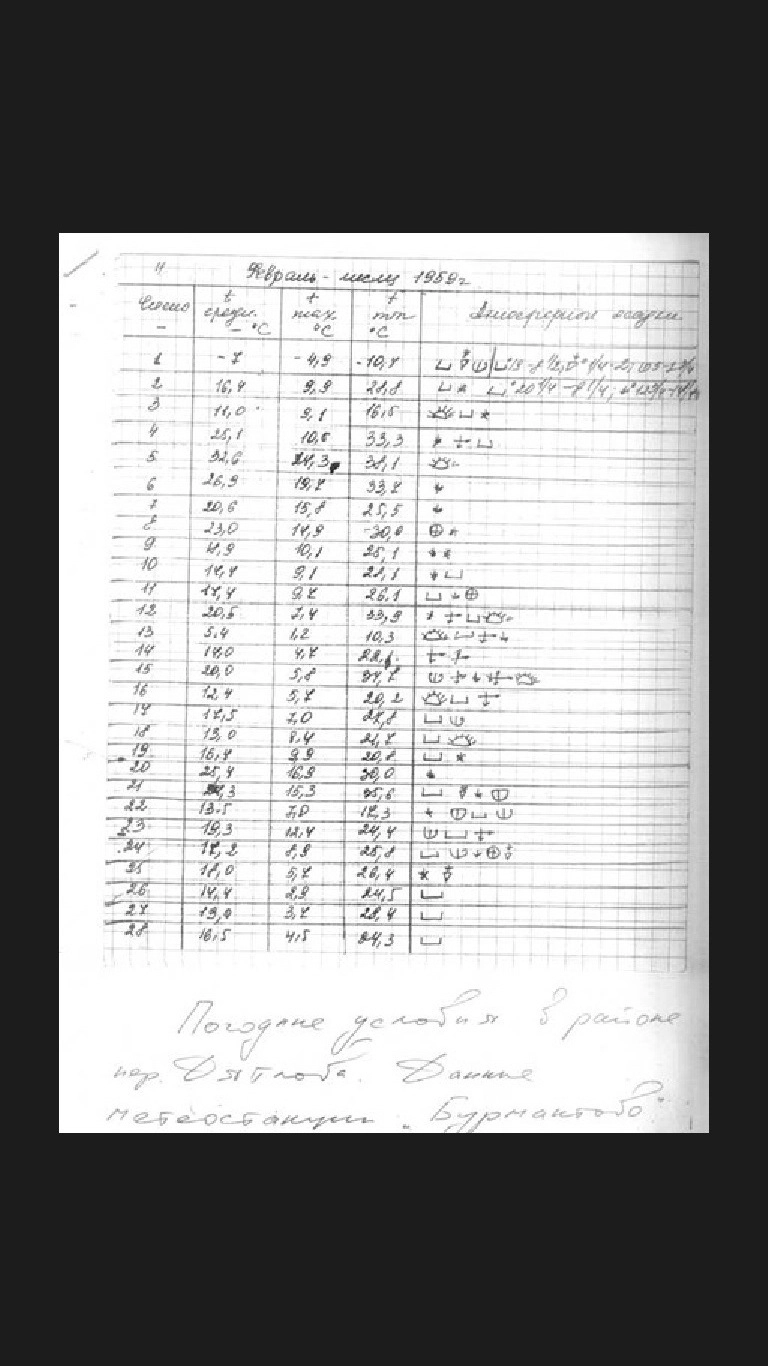 Февраль - месяц 1959г
Число t средн. - °C t max. °C t min °C Атмосферной осадки
1 -7 -4,9 -10,7
2 16,4 9,9 21,8
3 11,0 9,1 16,5
4 25,1 33,3
5 32,6 38,1
6 26,9 19,7 33,7
7 20,6 15,8 25,5
8 23,0 14,9
9 10,1 25,1
10 14,4 9,1
11 17,4 9,7 26,1
12 20,5 7,4 33,9
13 5,4 1,2 10,3
14 4,7
15 20,0 5,8
16 12,4 5,7 20,2
17 17,5 7,0
18 13,0 8,4 21,7
19 16,7 9,9 20,8
20 25,4 16,9 30,0
21 15,3 35,6
22 13.5 7,0 17,3
23 19,3 12,4 24,4
24 17,2 8,9 25,8
25 18,0 5,7 26,4
26 14,4 2,9 24,5
27 3,7 28,4
28 16,5 4,5 24,3
Погодные условия в районе
пер. Дятлова. Данные
метеостанции „Бурмантово"